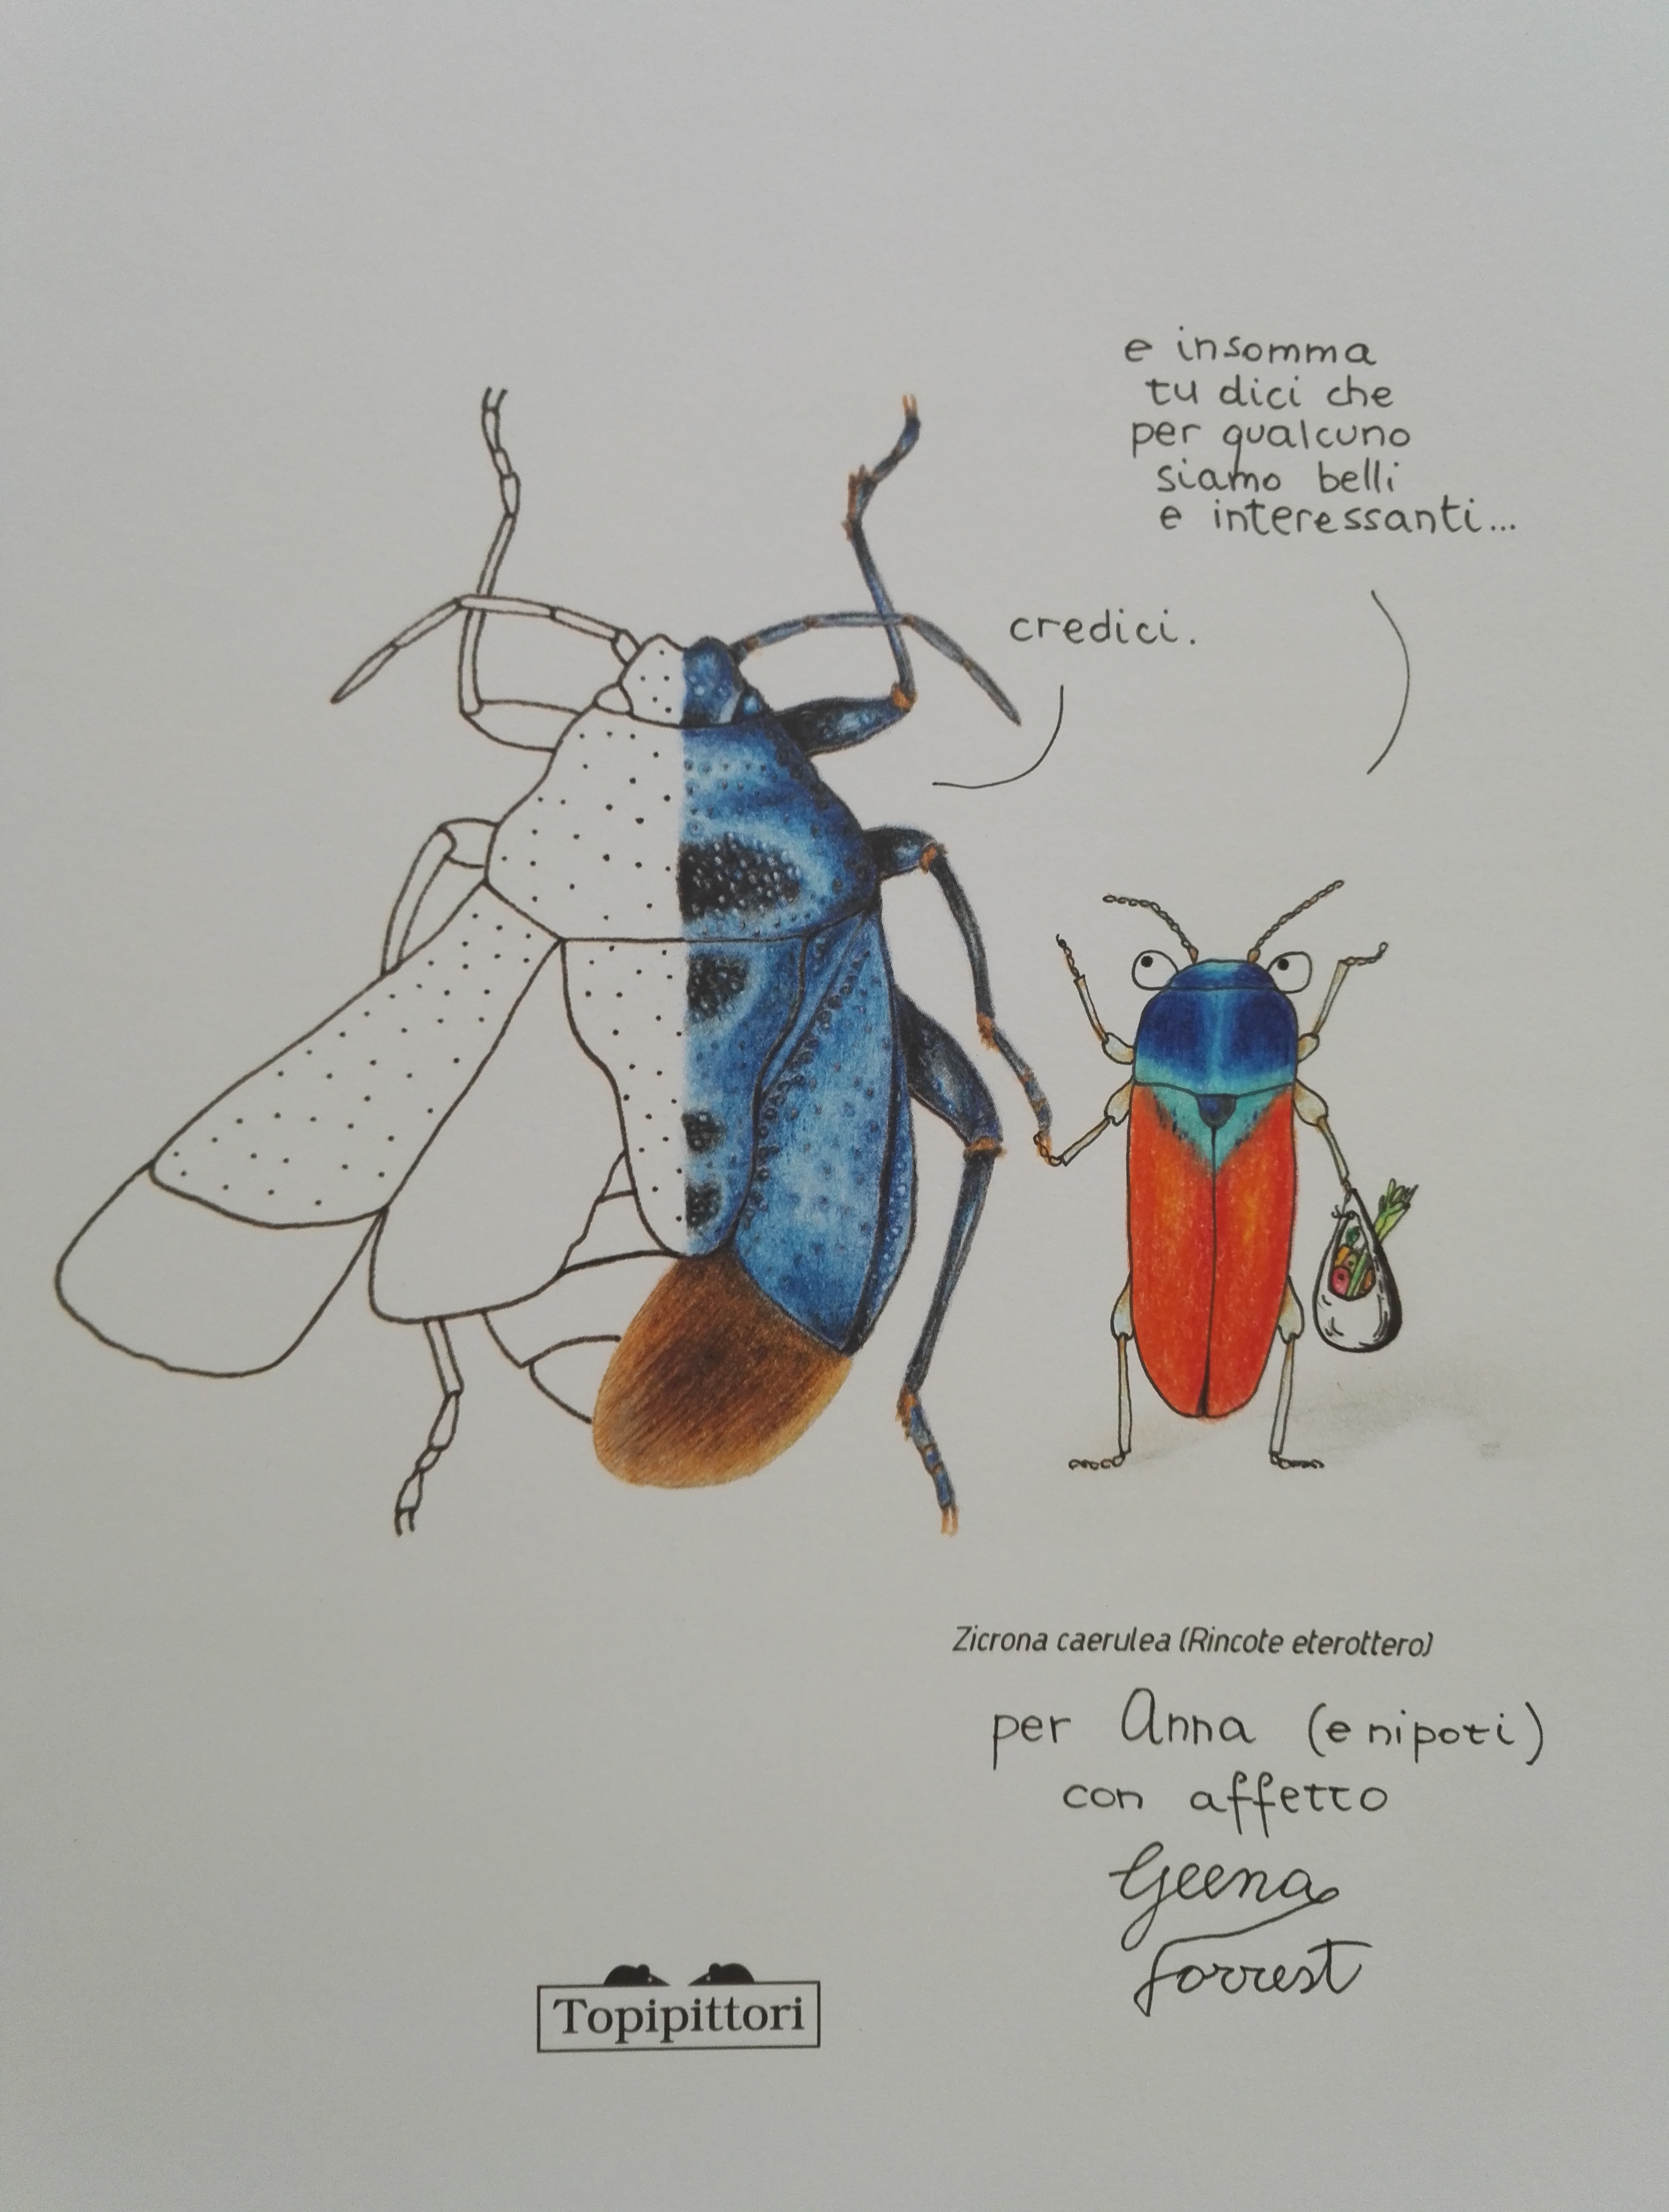 e insomma
tu dici che
per qualcuno
siamo belli
e interessanti...
credici.
Zicrona caerulea (Rincote eterottero)
per Anna (e nipoti)
con affetto
Geena
Forrest
Topipittori